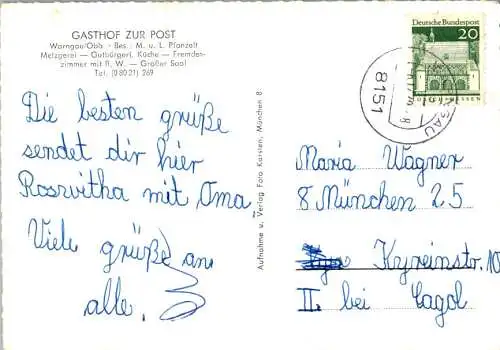 GASTHOF ZUR POST
Warngau/Obb. - Bes.: M. u. L. Pfanzelt
Metzgerei — Gutbürgerl. Küche — Fremden-
zimmer mit fl. W. — Großer Saal
Tel. (0 80 21) 269
Die besten grüße
sendet dir hier
Roswitha mit Oma
Viele grüße an
alle.
Aufnahme u. Verlag Foto Karsten, München 8
Deutsche Bundespost
20
LORSCH/HESSEN
8151
WARNGAU
Maria Wagner
8 München 25
Kyreinstr. 10
II. bei Cagol